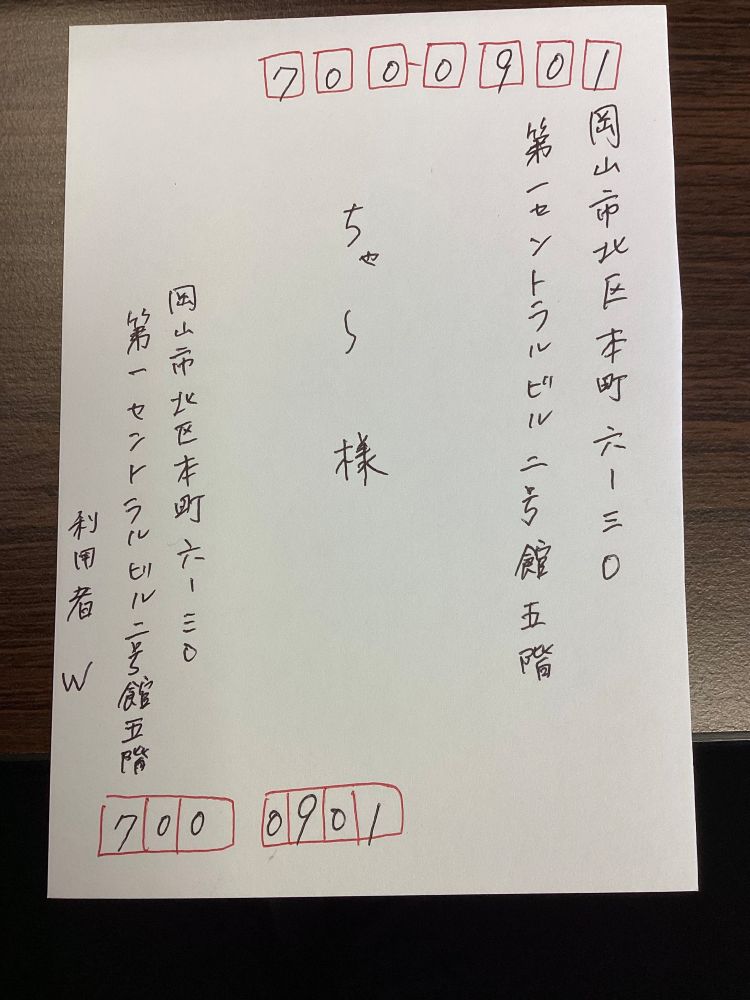 700-0901
岡山市北区本町六ー三〇
第一セントラルビル二号館五階
ちゃ〜様
岡山市北区本町六ー三〇
第一セントラルビル二号館五階
利用者 W
700 0901